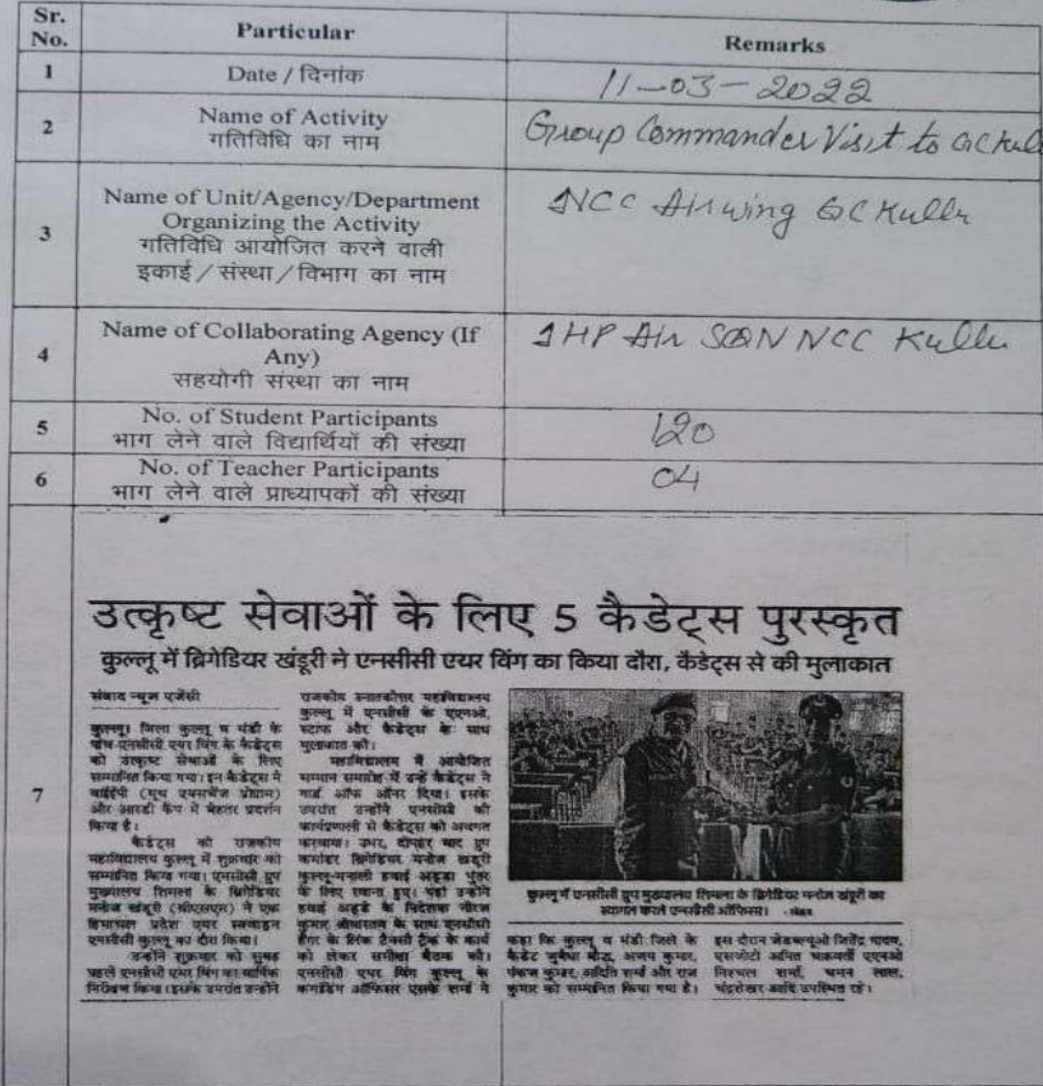 Sr. No. Particular Remarks
1 Date / दिनांक 11-03-2022
2 Name of Activity Group Commander Visit to GC Kul
गतिविधि का नाम
3 Name of Unit/Agency/Department NCC Airwing GC Kullu
Organizing the Activity
गतिविधि आयोजित करने वाली
इकाई / संस्था / विभाग का नाम
4 Name of Collaborating Agency (If 1 HP Air SQN NCC Kullu
Any)
सहयोगी संस्था का नाम
5 No. of Student Participants 120
भाग लेने वाले विद्यार्थियों की संख्या
6 No. of Teacher Participants 04
भाग लेने वाले प्राध्यापकों की संख्या
7
उत्कृष्ट सेवाओं के लिए 5 कैडेट्स पुरस्कृत
कुल्लू में ब्रिगेडियर खंडूरी ने एनसीसी एयर विंग का किया दौरा, कैडेट्स से की मुलाकात
संवाद न्यूज एजेंसी
कुल्लू। जिला कुल्लू व मंडी के
पांच एनसीसी एयर विंग के कैडेट्स
को उत्कृष्ट सेवाओं के लिए
सम्मानित किया गया। इन कैडेट्स ने
वाईईपी (यूथ एक्सचेंज प्रोग्राम)
और आरडी कैंप में बेहतर प्रदर्शन
किया है।
कैडेट्स को राजकीय
महाविद्यालय कुल्लू में शुक्रवार को
सम्मानित किया गया। एनसीसी ग्रुप
मुख्यालय शिमला के ब्रिगेडियर
मनोज खंडूरी (वीएसएम) ने एक
हिमाचल प्रदेश एयर स्क्वाड्रन
एनसीसी कुल्लू का दौरा किया।
उन्होंने शुक्रवार को सुबह
पहले एनसीसी एयर विंग का वार्षिक
निरीक्षण किया। इसके उपरांत उन्होंने
राजकीय स्नातकोत्तर महाविद्यालय
कुल्लू में एनसीसी के एएनओ,
स्टाफ और कैडेट्स के साथ
मुलाकात की।
महाविद्यालय में आयोजित
सम्मान समारोह में उन्हें कैडेट्स ने
गार्ड ऑफ ऑनर दिया। इसके
उपरांत उन्होंने एनसीसी की
कार्यप्रणाली से कैडेट्स को अवगत
करवाया। उधर, दोपहर बाद ग्रुप
कमांडर ब्रिगेडियर मनोज खंडूरी
कुल्लू-मनाली हवाई अड्डा भुंतर
के लिए रवाना हुए। यहां उन्होंने
हवाई अड्डे के निदेशक नीरज
कुमार श्रीवास्तव के साथ एनसीसी
हैंगर के लिंक टैक्सी ट्रैक के कार्य
को लेकर समीक्षा बैठक की।
एनसीसी एयर विंग कुल्लू के
कमांडिंग ऑफिसर एसके शर्मा ने
कुल्लू में एनसीसी ग्रुप मुख्यालय शिमला के ब्रिगेडियर मनोज खंडूरी का
स्वागत करते एनसीसी ऑफिसर। -संवाद
कहा कि कुल्लू व मंडी जिले के
कैडेट बौद्ध, अजय कुमार,
पंकज कुमार, अदिति शर्मा और राज
कुमार को सम्मानित किया गया है।
इस दौरान जेडब्ल्यूओ जितेंद्र यादव,
एसजीटी अमित चक्रवर्ती एएनओ
निश्चल शर्मा, चमन लाल,
चंद्रशेखर आदि उपस्थित रहे।